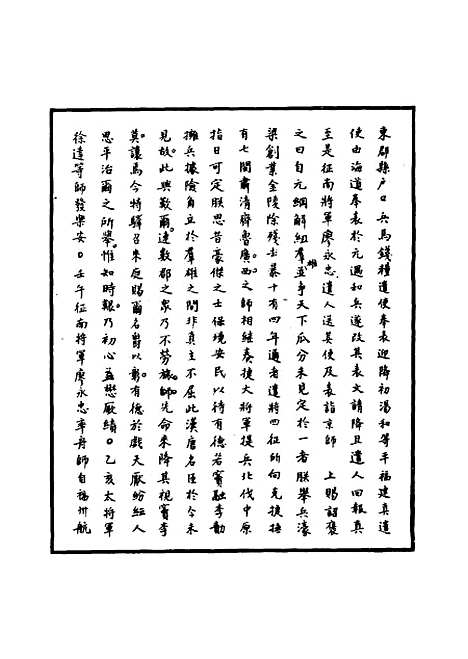 東郡縣户口兵馬錢糧遣使奉表迎降初湯和等平福建真遣
使由海道奉表於元遇和兵遂改其表文請降且遣人回報真
至是征南將軍廖永忠遣人送其使及表詣京師　上賜詔褒
之曰自元綱解紐羣雄並爭天下瓜分未見定於一者朕舉兵濠
梁創業金陵除殘去暴十有四年邇者遣將四征所向克捷
有七閩肅清齊魯廣西之師相繼奏捷大將軍提兵北伐中原
指日可定朕思昔豪傑之士保境安民以待有德若竇融李勣
擁兵據險角立於羣雄之間非真主不屈此漢唐名臣於今未
見故此興歎爾連數郡之衆乃不勞旅師先命來降其視竇李
莫讓焉今特驛召來庭賜爾名爵以彰有德於戲天厭紛紜人
思平治爾之所舉惟知時艱乃初心益懋厥績乙亥太將軍
徐達等師發樂安壬午征南將軍廖永忠率舟師自福州航